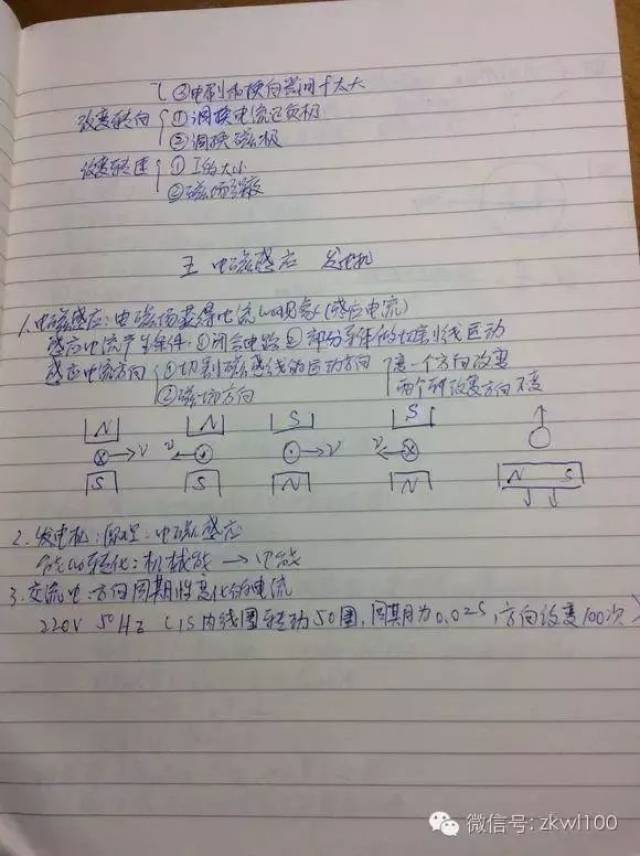 ③电刷和换向器间f太大
改变转向 ①调换电流正负极
②调换磁极
改变转速 ①I的大小
②磁场强度
五 电磁感应 发电机
1.电磁感应:由磁场获得电流的现象(感应电流)
感应电流产生条件:①闭合电路②部分导体的切割线运动
感应电流方向 ①切割磁感线的运动方向 变一个方向改变
②磁场方向 两个都改变方向不变
N N S S
v v v v
S S N N N S
2.发电机:原理:电磁感应
能的转化:机械能→电能
3.交流电:方向周期性变化的电流
220V 50Hz (1S内线圈转动50圈,周期为0.02S,方向改变100次)
微信号: zkwl100